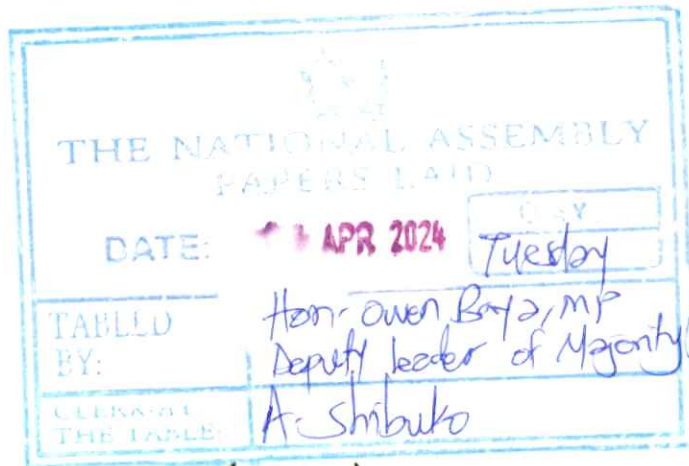 THE NATIONAL ASSEMBLY
PAPERS LAID
DAY
DATE: APR 2024 Tuesday
TABLED BY: Hon. Owen Baya, MP
Deputy leader of Majority
CLERK AT THE TABLE: A. Shibuko